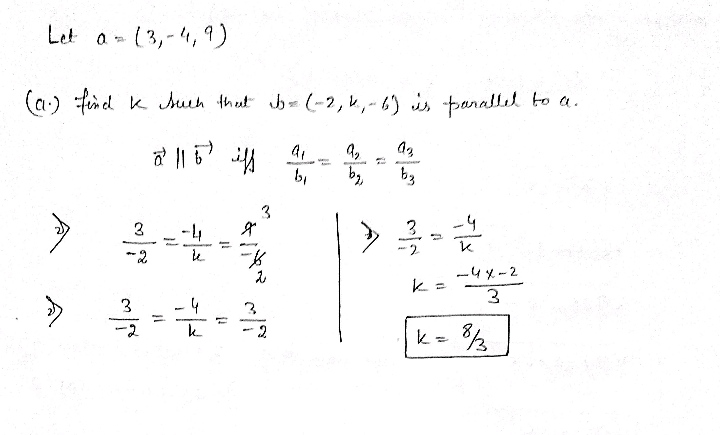 Let a = (3, -4, 9)
(a.) find k such that b = (-2, k, -6) is parallel to a.
a⃗ || b⃗ iff a₁/b₁ = a₂/b₂ = a₃/b₃
⇒ 3/-2 = -4/k = 9/-6 3 2
⇒ 3/-2 = -4/k = 3/-2
⇒ 3/-2 = -4/k
k = -4 x -2/3
k = 8/3